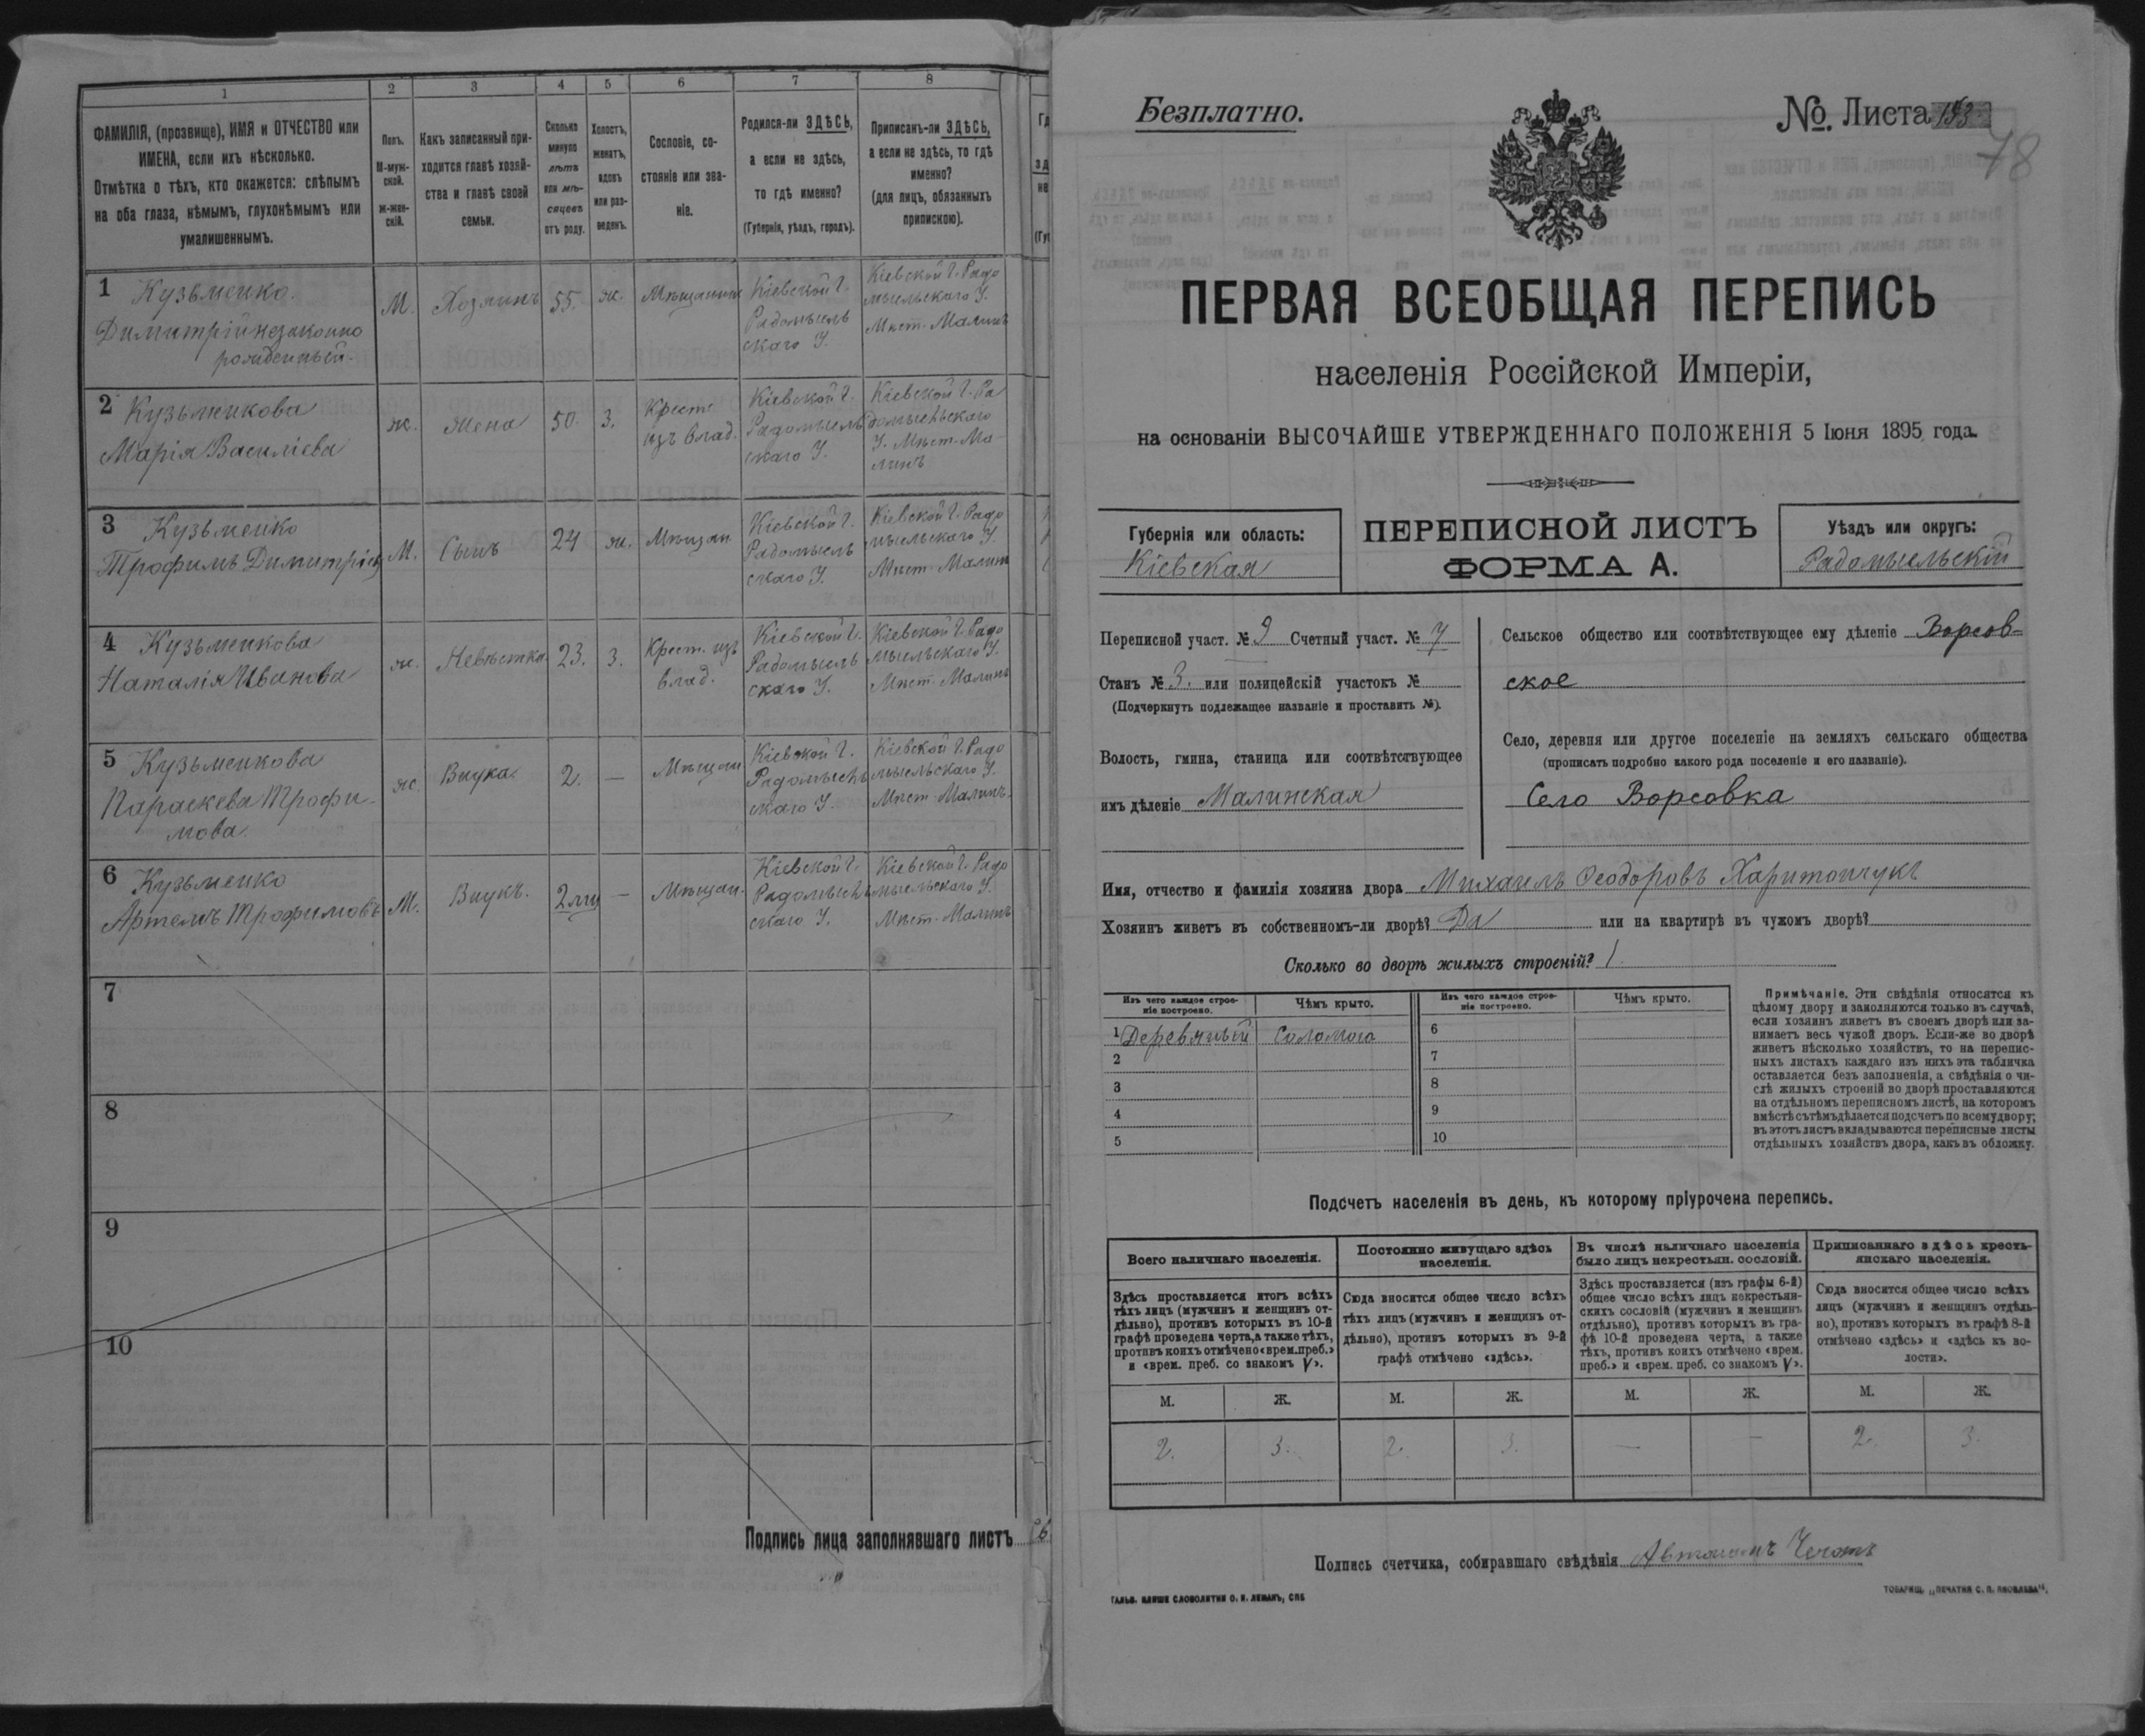 1
2
3
4
5
6
7
8
ФАМИЛІЯ, (прозвище), ИМЯ и ОТЧЕСТВО или
ИМЕНА, если ихъ нѣсколько.
Отмѣтка о тѣхъ, кто окажется: слѣпымъ
на оба глаза, нѣмымъ, глухонѣмымъ или
умалишеннымъ.
Полъ.
М-муж-
ской.
Ж-жен-
скій.
Какъ записанный при-
ходится главѣ хозяй-
ства и главѣ своей
семьи.
Сколько
минуло
лѣтъ
или мѣ-
сяцевъ
отъ роду.
Холостъ,
женатъ,
вдовъ
или раз-
веденъ.
Сословіе, со-
стояніе или зва-
ніе.
Родился-ли ЗДѢСЬ,
а если не здѣсь,
то гдѣ именно?
(Губернія, уѣздъ, городъ).
Приписанъ-ли ЗДѢСЬ,
а если не здѣсь, то гдѣ
именно?
(для лицъ, обязанныхъ
припискою).
1 Кузьменко.
Димитрій незаконно
рожденный.
М.
Хозяинъ
55.
ж.
Мѣщанинъ
Кіевской Г.
Радомысль
скаго У.
Кіевской Г. Радо
мысльскаго У.
Мѣст. Малинъ
2 Кузьменкова
Марія Василіева
ж.
Жена
50.
З.
Крест.
изъ влад.
Кіевской Г.
Радомысль
скаго У.
Кіевской Г. Ра
домысльскаго
У. Мѣст. Ма-
линъ
3 Кузьменко
Трофимъ Димитріевъ
М.
Сынъ
24
ж.
Мѣщан
Кіевской Г.
Радомысль
скаго У.
Кіевской Г. Радо
мысльскаго У.
Мѣст. Малинъ
4 Кузьменкова
Наталія Иванова
ж.
Невѣстка
23.
З.
Крест. изъ
влад.
Кіевской Г.
Радомысль
скаго У.
Кіевской Г. Радо
мысльскаго У.
Мѣст. Малинъ
5 Кузьменкова
Параскева Трофи-
мова.
ж.
Внука.
2.
—
Мѣщан
Кіевской Г.
Радомысль
скаго У.
Кіевской Г. Радо
мысльскаго У.
Мѣст. Малинъ.
6 Кузьменко
Артемъ Трофимовъ
М.
Внукъ.
—
Мѣщан.
Кіевской Г.
Радомысль
скаго У.
Кіевской Г. Радо
мысльскаго У.
Мѣст. Малинъ
7
8
9
10
Подпись лица заполнявшаго листъ
Безплатно.
№. Листа
78
ПЕРВАЯ ВСЕОБЩАЯ ПЕРЕПИСЬ
населенія Россійской Имперіи,
на основаніи ВЫСОЧАЙШЕ УТВЕРЖДЕННАГО ПОЛОЖЕНІЯ 5 Іюня 1895 года.
Губернія или область:
Кіевская
ПЕРЕПИСНОЙ ЛИСТЪ
ФОРМА А.
Уѣздъ или округъ:
Радомысльскій
Переписной участ. № 9 Счетный участ. № 7
Станъ № 3. или полицейскій участокъ №
(Подчеркнуть подлежащее названіе и проставить №).
Волость, гмина, станица или соотвѣтствующее
имъ дѣленіе Малинская
Сельское общество или соотвѣтствующее ему дѣленіе Ворсов-
ское
Село, деревня или другое поселеніе на земляхъ сельскаго общества
(прописать подробно какого рода поселеніе и его названіе).
Село Ворсовка
Имя, отчество и фамилія хозяина двора Михаилъ Ѳеодоровъ Харитончукъ
Хозяинъ живетъ въ собственномъ-ли дворѣ? Да или на квартирѣ въ чужомъ дворѣ?
Сколько во дворѣ жилыхъ строеній? 1
Изъ чего каждое строе-
ніе построено.
Чѣмъ крыто.
Изъ чего каждое строе-
ніе построено.
Чѣмъ крыто.
1 Деревяный Соломою
2
3
4
5
6
7
8
9
10
Примѣчаніе. Эти свѣдѣнія относятся къ
цѣлому двору и заполняются только въ случаѣ,
если хозяинъ живетъ въ своемъ дворѣ или за-
нимаетъ весь чужой дворъ. Если-же во дворѣ
живетъ нѣсколько хозяйствъ, то на перепис-
ныхъ листахъ каждаго изъ нихъ эта табличка
оставляется безъ заполненія, а свѣдѣнія о чи-
слѣ жилыхъ строеній во дворѣ проставляются
на отдѣльномъ переписномъ листѣ, на которомъ
вмѣстѣ съ тѣмъ дѣлается подсчетъ по всему двору;
въ этотъ листъ вкладываются переписные листы
отдѣльныхъ хозяйствъ двора, какъ въ обложку.
Подсчетъ населенія въ день, къ которому пріурочена перепись.
Всего наличнаго населенія.
Постоянно живущаго здѣсь
населенія.
Въ числѣ наличнаго населенія
было лицъ некрестьян. сословій.
Приписаннаго здѣсь кресть-
янскаго населенія.
Здѣсь проставляется итогъ всѣхъ
тѣхъ лицъ (мужчинъ и женщинъ от-
дѣльно), противъ которыхъ въ 10-й
графѣ проведена черта, а также тѣхъ,
противъ коихъ отмѣчено «врем. преб.»
и «врем. преб. со знакомъ V».
Сюда вносится общее число всѣхъ
тѣхъ лицъ (мужчинъ и женщинъ от-
дѣльно), противъ которыхъ въ 9-й
графѣ отмѣчено «здѣсь».
Здѣсь проставляется (изъ графы 6-й)
общее число всѣхъ лицъ некрестьян-
скихъ сословій (мужчинъ и женщинъ
отдѣльно), противъ которыхъ въ гра-
фѣ 10-й проведена черта, а также
тѣхъ, противъ коихъ отмѣчено «врем.
преб.» и «врем. преб. со знакомъ V».
Сюда вносится общее число всѣхъ
лицъ (мужчинъ и женщинъ отдѣль-
но), противъ которыхъ въ графѣ 8-й
отмѣчено «здѣсь» и «здѣсь къ во-
лости».
М. Ж. М. Ж. М. Ж. М. Ж.
2. 3. 2. 3. — — 2. 3.
Подпись счетчика, собиравшаго свѣдѣнія
ГАЛЬВ. КЛИШЕ СЛОВОЛИТНИ О. И. ЛЕМАНЪ, СПБ
ТОВАРИЩ. „ПЕЧАТНЯ С. П. ЯКОВЛЕВА“.